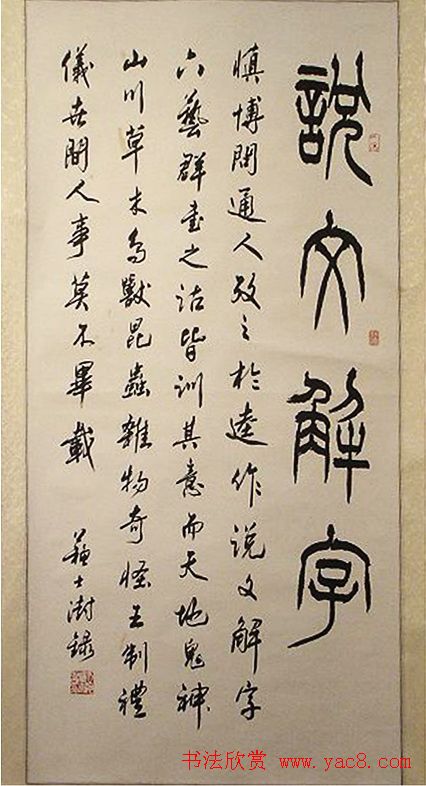 說文解字
慎博問通人攷之於逵作説文解字
六藝群書之詁皆訓其意而天地鬼神
山川草木鳥獸昆蟲雜物奇怪王制禮
儀世間人事莫不畢載
蘇士澍録
书法欣赏 www.yac8.com